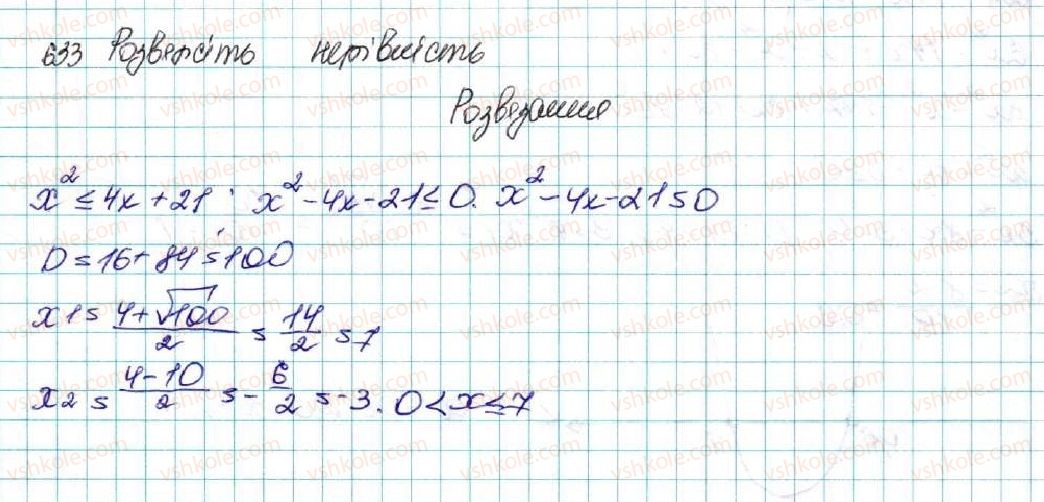 633 Розвяжіть нерівність
Розвязання
x² ≤ 4x + 21; x² - 4x - 21 ≤ 0. x² - 4x - 21 = 0
D = 16 + 84 = 100
x1 = (4 + √100)/2 = 14/2 = 7
x2 = (4 - 10)/2 = -6/2 = -3. 0 < x ≤ 7